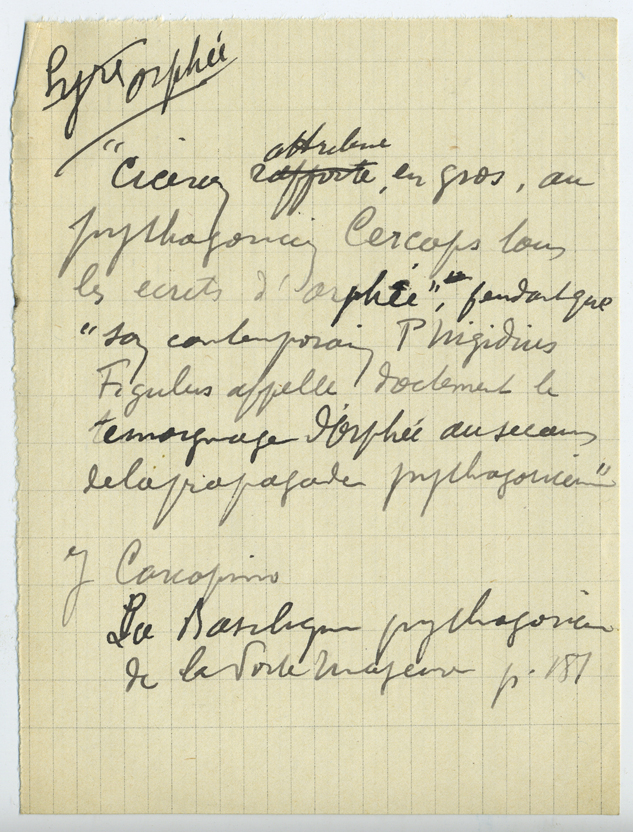 Pyre Orphée
attribue
"Ciceron rapporte, en gros, au
pythagoricien Cercops tous
les ecrits d'orphée", pendant que
"son contemporain P Nigidius
Figulus appelle doctement le
temoignage d'Orphée au secours
de la propagande pythagoricienne"
J Carcopino
La Basilique pythagoricienne
de la Porte Majeure p. 187